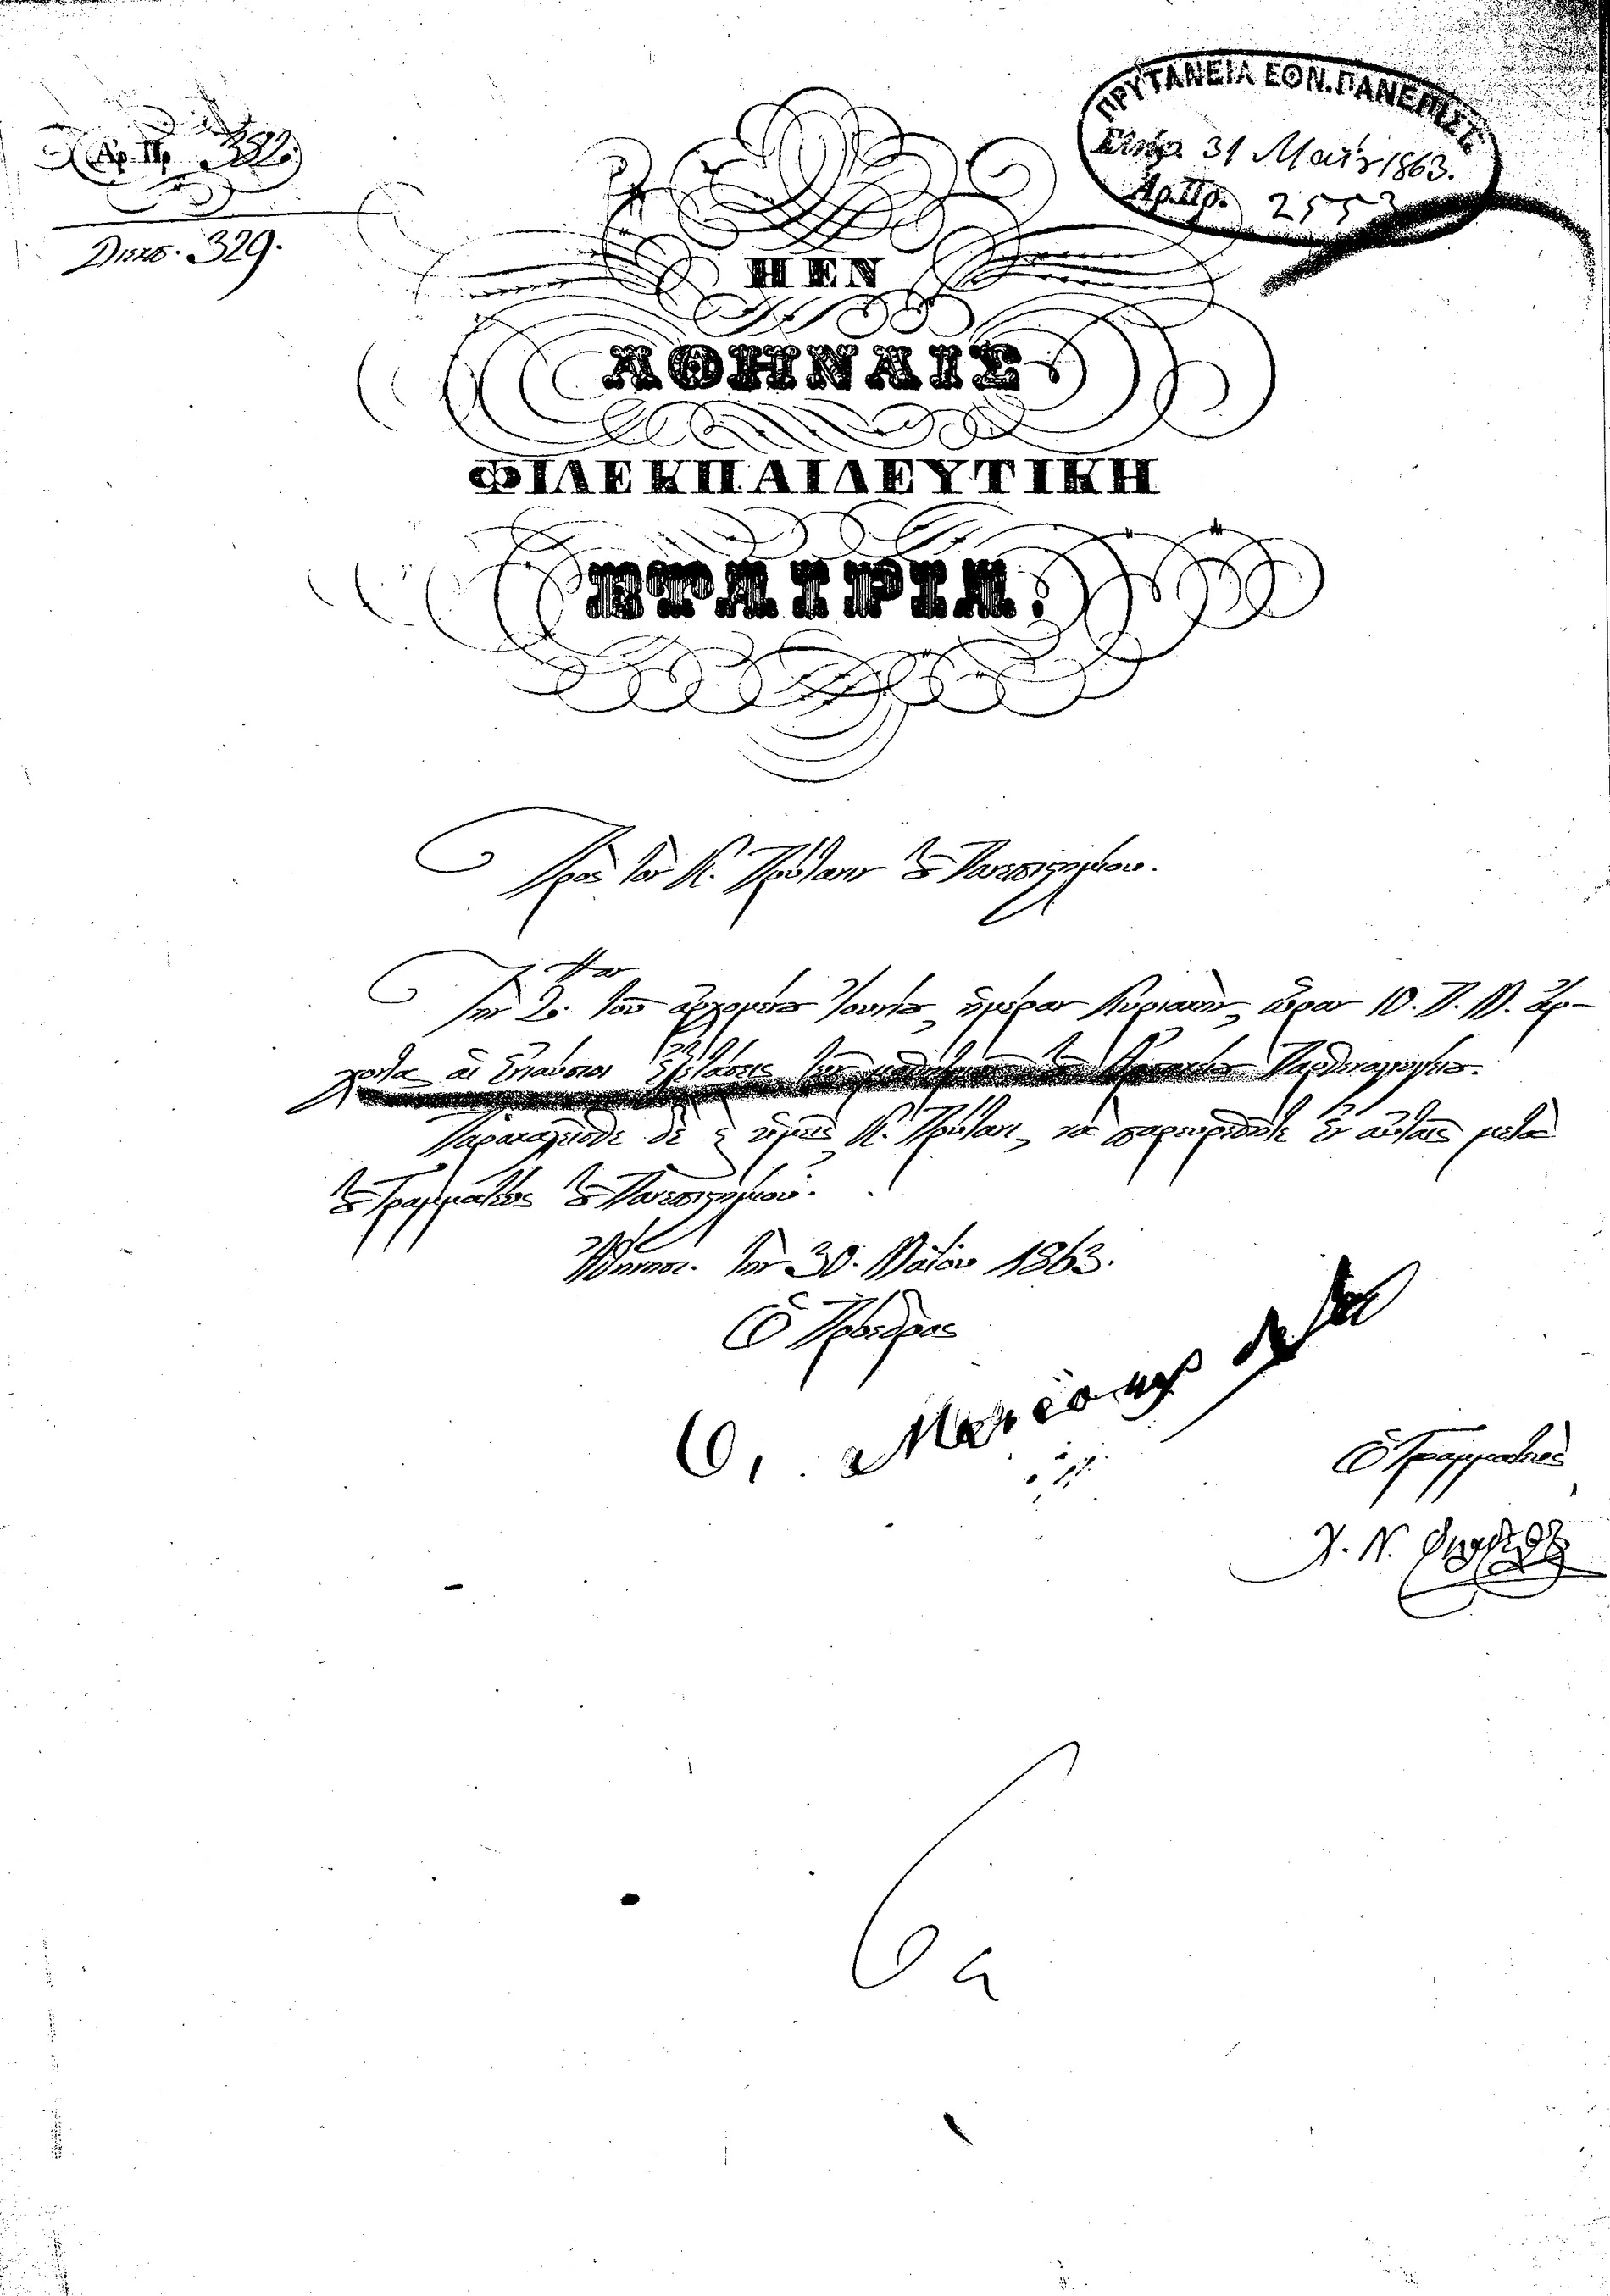 Αρ. Πρ. 332.
Διεκπ. 329.
ΠΡΥΤΑΝΕΙΑ ΕΘΝ. ΠΑΝΕΠΙΣΤ.
31 Μαΐου 1863.
Αρ. Πρ. 2553
Η ΕΝ
ΑΘΗΝΑΙΣ
ΦΙΛΕΚΠΑΙΔΕΥΤΙΚΗ
ΕΤΑΙΡΙΑ.
Πρὸς τὸν Κ. Πρύτανιν τοῦ Πανεπιστημίου.
Τὴν 2αν τοῦ ἀρχομένου Ἰουνίου, ἡμέραν Κυριακὴν, ὥραν 10. Π. Μ. ἄρ-
χονται αἱ ἐνιαύσιοι ἐξετάσεις τῶν μαθητριῶν τοῦ Ἀρσακείου Παρθεναγωγείου.
Παρακαλεῖσθε δὲ καὶ ὑμεῖς, Κ. Πρύτανι, νὰ παρευρεθῆτε ἐν αὐταῖς μετὰ
τοῦ Γραμματέως τοῦ Πανεπιστημίου.
Ἀθήνησι. τὴν 30. Μαΐου 1863.
Ὁ Πρόεδρος
Ὁ Γραμματεὺς